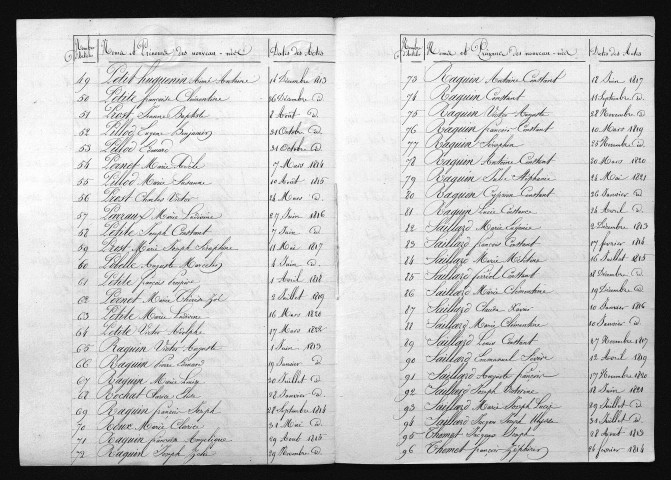 Nombre d'articles Noms et Prénoms des nouveau-nés Dates des Actes
49 Petit huguenin Aimé Antoine 16 Décembre 1813
50 Petite françoise Clémentine 26 Décembre d.
51 Prost Jeanne Baptiste 2 Août d.
52 Pillod Eugene Benjamin 31 Octobre d.
53 Pillod Edouard 31 Octobre d.
54 Pernet Marie Adèle 7 Mars 1814
55 Pillod Marie Suzanne 10 Août 1815
56 Prost Charles Victor 24 Mars d.
57 Marie Ludivine 27 Juin 1816
58 Petite Joseph Constant 7 Juin d.
59 Prost Marie Joseph Séraphine 11 Mai 1817
60 Auguste Marcelin 4 Juin d.
61 Petite françois 1 Avril 1818
62 Pernet Marie Thérèse Zoé 2 Juillet 1819
63 Petite Marie Ludivine 16 Mars 1820
64 Petite Victor Adolphe 17 Mars 1822
65 Raguin Victor Auguste 1 Juin 1813
66 Raguin Edouard 19 Janvier d.
67 Raguin Marie Louise 20 Juillet d.
68 Rochat 28 Janvier d.
69 Raguin françois Joseph 28 Septembre 1814
70 Roux Marie Clarice 31 Mai d.
71 Raguin françoise Angélique 29 Août 1815
72 Raguin Joseph Zoé 29 Novembre d.
Nombre d'articles Noms et Prénoms des nouveau-nés Dates des Actes
73 Raguin Antoine Constant 18 Juin 1817
74 Raguin Constant 11 Septembre d.
75 Raguin Victor Auguste 28 Novembre d.
76 Raguin françois Constant 10 Mars 1819
77 Raguin Séraphin 25 Novembre d.
78 Raguin Antoine Constant 20 Mars 1820
79 Raguin Julie Stéphanie 24 Mai 1821
80 Raguin Cyprien Constant 26 Janvier d.
81 Raguin Lucie Constance 24 Avril d.
82 Saillard Marie Eugénie 2 Décembre 1813
83 Saillard françois Constant 17 février 1814
84 Saillard Marie 16 Juillet 1815
85 Saillard Constant 18 Décembre d.
86 Saillard Marie Clémentine 19 Décembre d.
87 Saillard Claude Xavier 10 Janvier 1816
88 Saillard Marie Clémentine 10 Janvier d.
89 Saillard Constant 27 Novembre 1817
90 Saillard Emmanuel 12 Avril 1819
91 Saillard Auguste françois 17 Novembre 1820
92 Saillard Joseph 18 Juin 1821
93 Saillard Marie Joseph Lucie 29 Juillet d.
94 Saillard Joseph 31 Juillet d.
95 Thomet Joseph 28 Août 1813
96 Thomet françois Zéphirin 26 février 1814